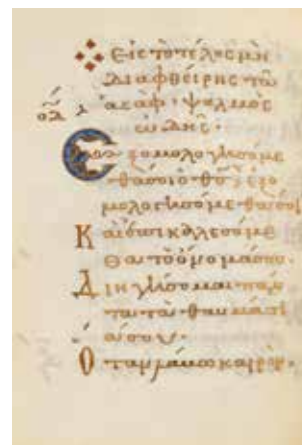 Εἰς τὸ τέλος μὴ
διαφθείρης τῶ
ἀσάφ · ψαλμὸς
ὠδῆς ·
Ἐξομολογησόμε
θά σοι ὁ θς ἐξο
μολογησόμεθά σοι
Καὶ ἐπικαλεσόμε
θα τὸ ὄνομά σου ·
Διηγήσομαι πάν
τα τὰ θαυμάσι
ά σου ·
Ὅταν λάβω καιρόν ·